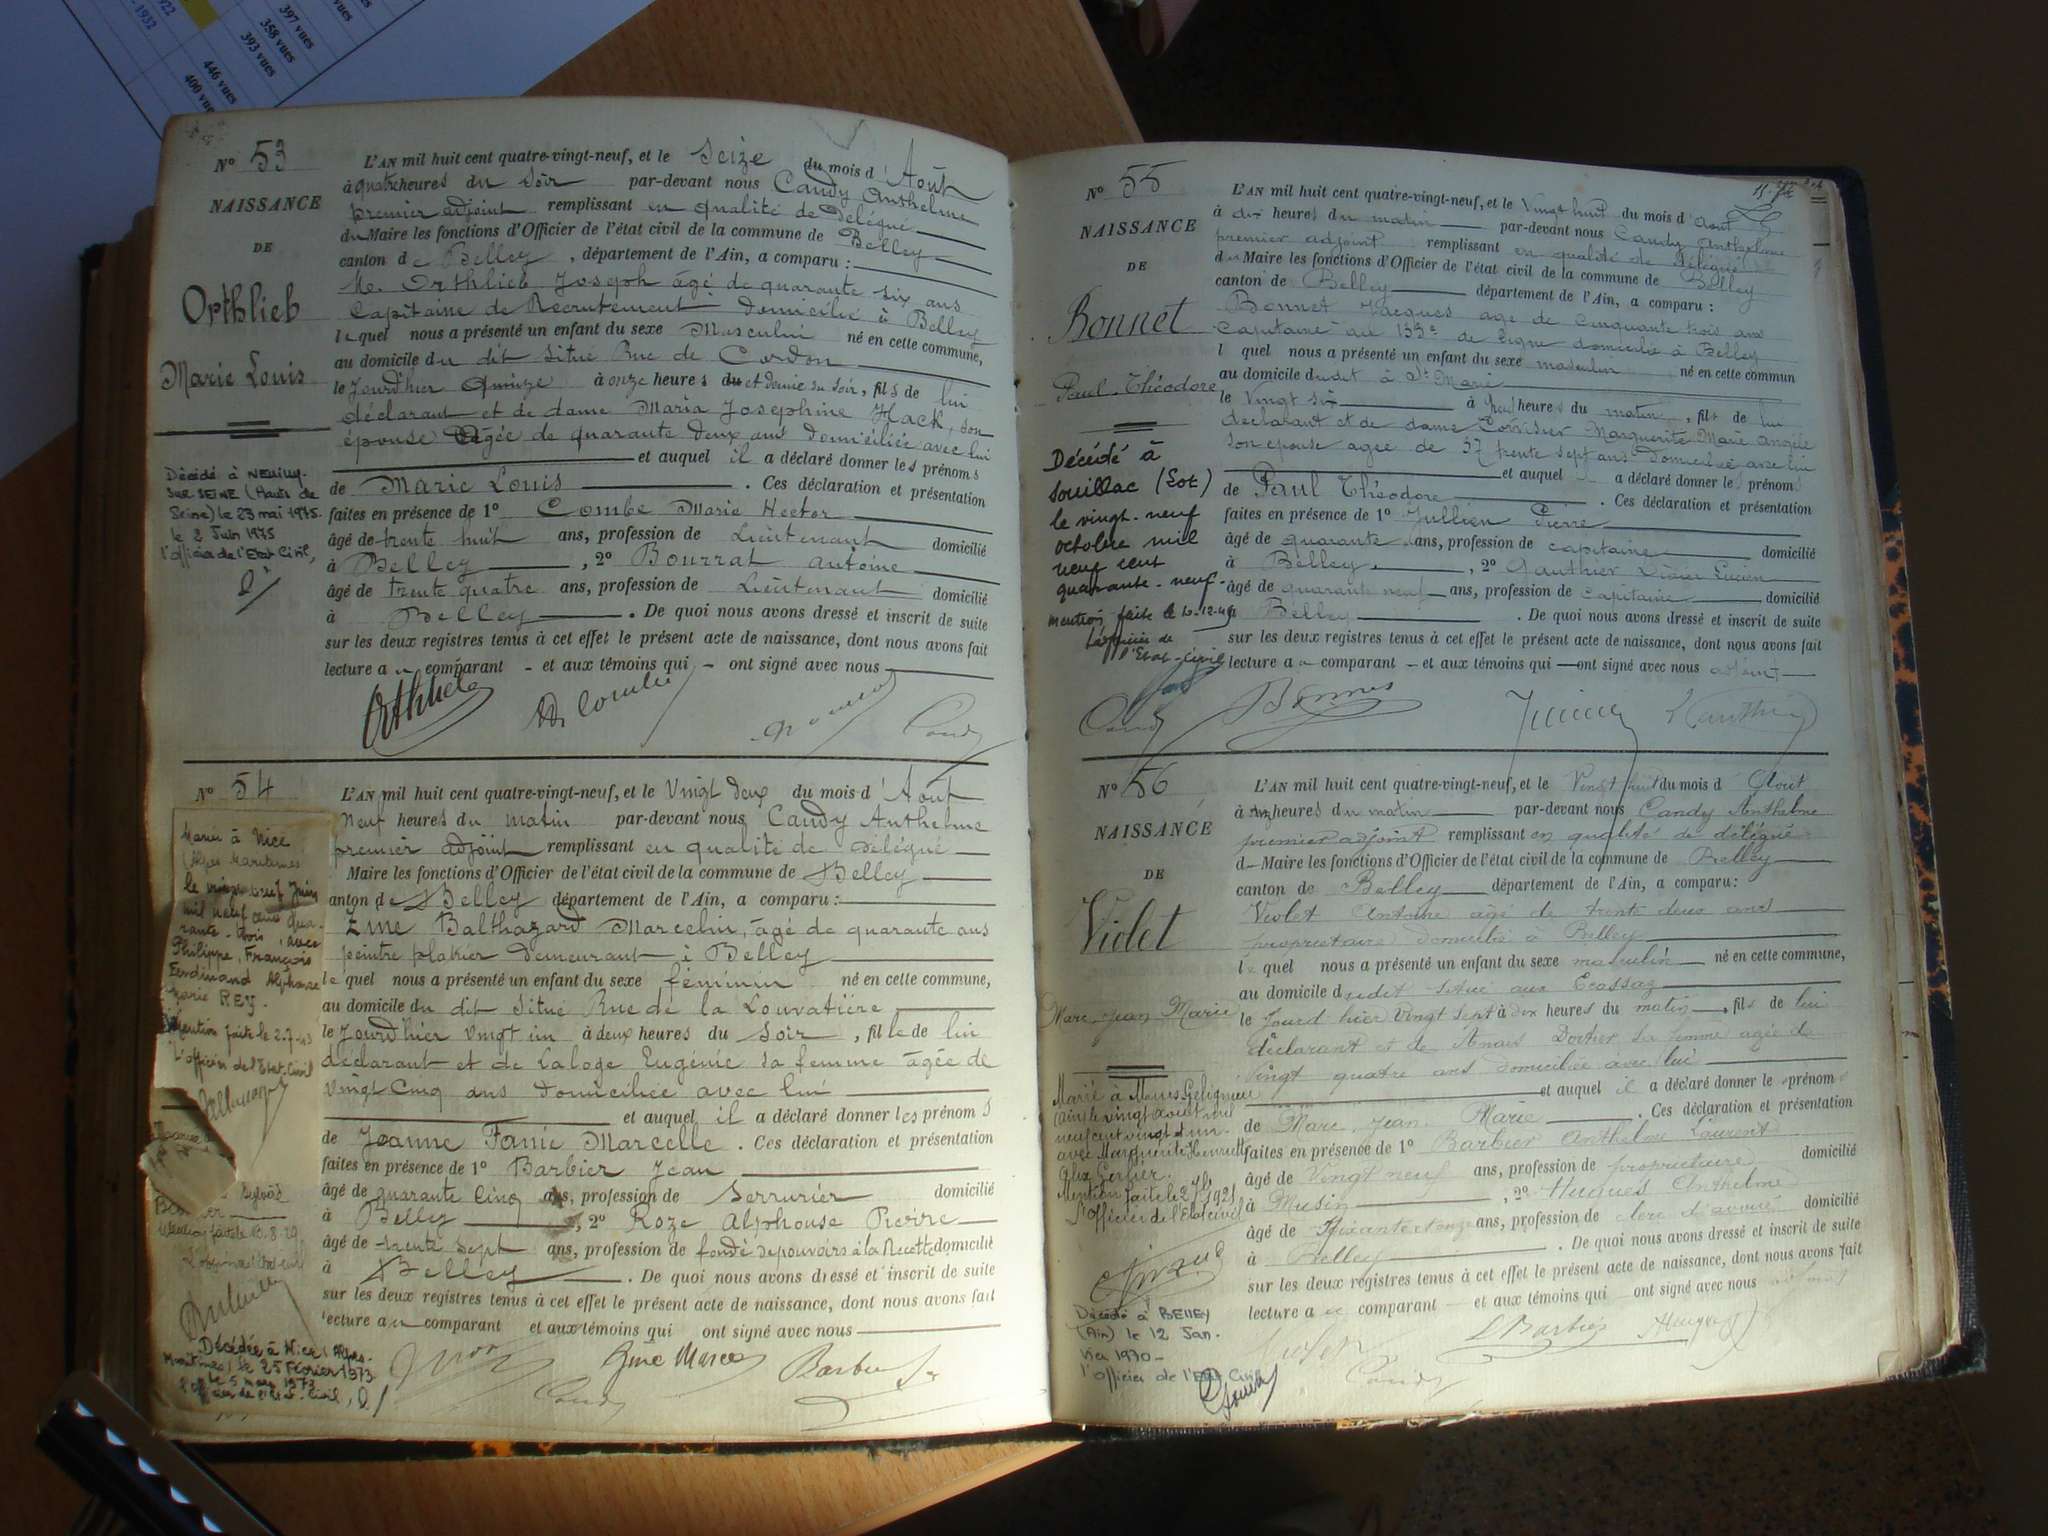 397 vues
358 vues
393 vues
446 vues
400 vues
N° 53
NAISSANCE
DE
Orthlieb
Marie Louis
Décédé à NEUILLY-
SUR SEINE (Hauts de
Seine) le 23 mai 1975.
le 2 Juin 1975
l'officier de l'Etat Civil,
L'AN mil huit cent quatre-vingt-neuf, et le Seize du mois d'Août
à quatre heures du Soir par-devant nous Candy Anthelme
premier adjoint remplissant en qualité de délégué
du Maire les fonctions d'Officier de l'état civil de la commune de Belley
canton de Belley, département de l'Ain, a comparu :
M. Orthlieb Joseph âgé de quarante six ans
Capitaine de Recrutement domicilié à Belley
lequel nous a présenté un enfant du sexe Masculin né en cette commune,
au domicile du dit situé Rue de Cordon
le Jourd'hier Quinze à onze heures du et demie du soir, fils de lui
déclarant et de dame Maria Josephine Hack, son
épouse âgée de quarante deux ans domiciliée avec lui
et auquel il a déclaré donner les prénoms
de Marie Louis. Ces déclaration et présentation
faites en présence de 1° Combe Marie Hector
âgé de trente huit ans, profession de Lieutenant domicilié
à Belley, 2° Bourrat antoine
âgé de trente quatre ans, profession de Lieutenant domicilié
à Belley. De quoi nous avons dressé et inscrit de suite
sur les deux registres tenus à cet effet le présent acte de naissance, dont nous avons fait
lecture au comparant - et aux témoins qui - ont signé avec nous
Orthlieb
Candy
N° 54
Mariée à Nice
(Alpes Maritimes
le vingt neuf Juin
mil neuf cent qua-
rante-trois, avec
Philippe, François
Ferdinand Alphonse
Marie REY.
Mention faite le 2-7-43
L'officier de l'Etat-Civil
Décédée à Nice (Alpes-
Maritimes) le 25 Février 1973
le 5 mars 1973
l'officier de l'Etat-Civil,
L'AN mil huit cent quatre-vingt-neuf, et le Vingt deux du mois d'Août
Neuf heures du Matin par-devant nous Candy Anthelme
premier adjoint remplissant en qualité de délégué
Maire les fonctions d'Officier de l'état civil de la commune de Belley
canton de Belley département de l'Ain, a comparu :
Eme Balthazard Marcelin, âgé de quarante ans
peintre plâtrier demeurant à Belley
lequel nous a présenté un enfant du sexe féminin né en cette commune,
au domicile du dit situé Rue de la Louvatière
le Jourd'hier vingt un à deux heures du Soir, fille de lui
déclarant et de Laloge Eugénie sa femme âgée de
vingt cinq ans domiciliée avec lui
et auquel il a déclaré donner les prénoms
de Jeanne Fanie Marcelle. Ces déclaration et présentation
faites en présence de 1° Barbier Jean
âgé de quarante cinq ans, profession de Serrurier domicilié
à Belley, 2° Roze Alphonse Pierre
âgé de trente sept ans, profession de fondé de pouvoirs à la Recette domicilié
à Belley. De quoi nous avons dressé et inscrit de suite
sur les deux registres tenus à cet effet le présent acte de naissance, dont nous avons fait
lecture au comparant et aux témoins qui ont signé avec nous
Eme Marce
Barbier
Candy
N° 55
NAISSANCE
DE
Bonnet
Paul Théodore
Décédé à
Souillac (Lot)
le vingt-neuf
octobre mil
neuf cent
quarante-neuf.
mention faite le 10-12-49
L'officier de
l'Etat-Civil
L'AN mil huit cent quatre-vingt-neuf, et le Vingt huit du mois d'août
à dix heures du matin par-devant nous Candy Anthelme
premier adjoint remplissant en qualité de délégué
du Maire les fonctions d'Officier de l'état civil de la commune de Belley
canton de Belley département de l'Ain, a comparu :
Bonnet Jacques agé de cinquante trois ans
Capitaine au 133e de ligne domicilié à Belley
l quel nous a présenté un enfant du sexe masculin né en cette commun
au domicile du dit à St Marie
le Vingt six à heures du matin, fils de lui
déclarant et de dame Corvisier Marguerite Marie angèle
son épouse agée de 37 trente sept ans domiciliée avec lui
et auquel a déclaré donner le prénoms
de Paul Théodore. Ces déclaration et présentation
faites en présence de 1° Jullien Pierre
âgé de quarante ans, profession de capitaine domicilié
à Belley, 2° Gauthier Lucien
âgé de quarante neuf ans, profession de capitaine domicilié
à Belley. De quoi nous avons dressé et inscrit de suite
sur les deux registres tenus à cet effet le présent acte de naissance, dont nous avons fait
lecture au comparant - et aux témoins qui - ont signé avec nous
Candy
N° 56
NAISSANCE
DE
Violet
Marc Jean Marie
Marié à
(ain le vingt août mil
neuf cent vingt et un
avec Marguerite Henriette
Gerbier.
l'officier de l'Etat civil
Décédé à BELLEY
(Ain) le 12 Jan-
vier 1970 -
l'officier de l'Etat Civil
L'AN mil huit cent quatre-vingt-neuf, et le Vingt huit du mois d'Août
à heures du matin par-devant nous Candy Anthelme
premier adjoint remplissant en qualité de délégué
d Maire les fonctions d'Officier de l'état civil de la commune de Belley
canton de Belley département de l'Ain, a comparu :
Violet Antoine âgé de trente deux ans
propriétaire domicilié à Belley
lequel nous a présenté un enfant du sexe masculin né en cette commune,
au domicile du dit situé aux Ecassaz
le Jourd'hier Vingt sept à dix heures du matin, fils de lui
déclarant et de Anais Dortier sa femme agée de
vingt quatre ans domiciliée avec lui
et auquel il a déclaré donner le prénoms
de Marc Jean Marie. Ces déclaration et présentation
faites en présence de 1° Barbier Anthelme Laurent
âgé de Vingt neuf ans, profession de propriétaire domicilié
à Musin, 2° Hugues Anthelme
âgé de Soixante et onze ans, profession de clerc d'avoué domicilié
à Belley. De quoi nous avons dressé et inscrit de suite
sur les deux registres tenus à cet effet le présent acte de naissance, dont nous avons fait
lecture au comparant et aux témoins qui ont signé avec nous
Violet
Barbier
Candy